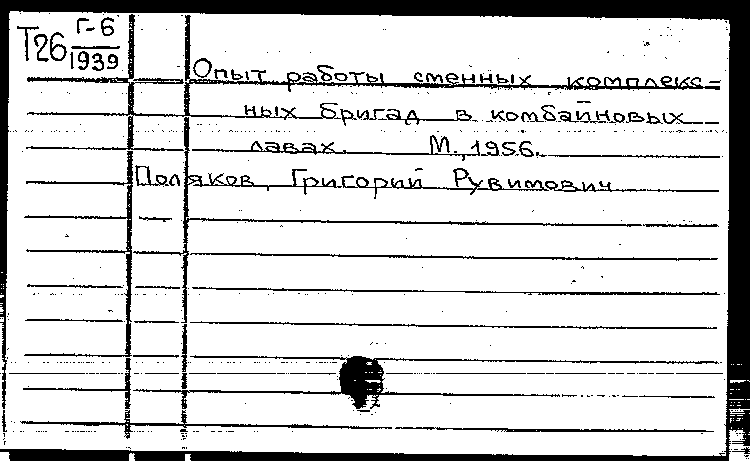 Т26 Г-6
1939
Опыт работы сменных комплекс=
ных бригад в комбайновых
лавах. М., 1956.
Поляков, Григорий Рувимович